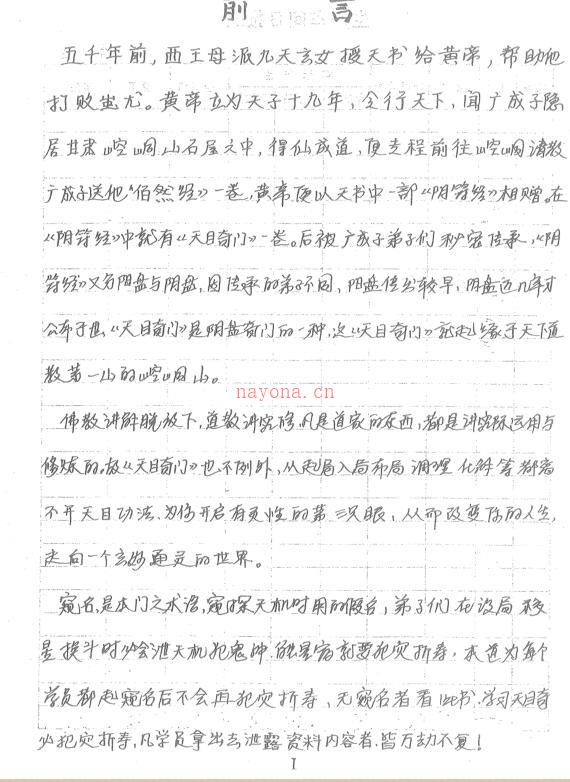 前言
五千年前，西王母派九天玄女授天书给黄帝，帮助他
打败蚩尤。黄帝立为天子十九年，令行天下，闻广成子隐
居甘肃崆峒山石屋之中，得仙成道，便专程前往崆峒请教
广成子送他《自然经》一卷，黄帝便以天书中一部《阴符经》相赠。在
《阴符经》中就有《天目奇门》一卷。后被广成子弟子们秘密传承，《阴
符经》又分阳盘与阴盘，因传承的弟子不同，阳盘传出较早，阴盘近几年才
公布于世，《天目奇门》是阴盘奇门的一种，这《天目奇门》就起缘于天下道
教第一山的崆峒山。
nayona.cn
佛教讲解脱放下，道教讲究修，凡是道家的东西，都是讲究际运用与
修炼的。故《天目奇门》也不例外，从起局入局布局调理化解等都离
不开天目功法，为你开启有灵性的第三只眼，从而改变你的人生，
走向一个玄妙通灵的世界。
窥名，是本门之术语，窥探天机时用的假名，弟子们在设局移
星换斗时必会泄天机犯鬼神，就要犯灾折寿，本道为每个
学员都起窥名后不会再犯灾折寿，无窥名者看此书学习天目奇
必犯灾折寿，凡学员拿出去泄露资料内容者，皆万劫不复！
I